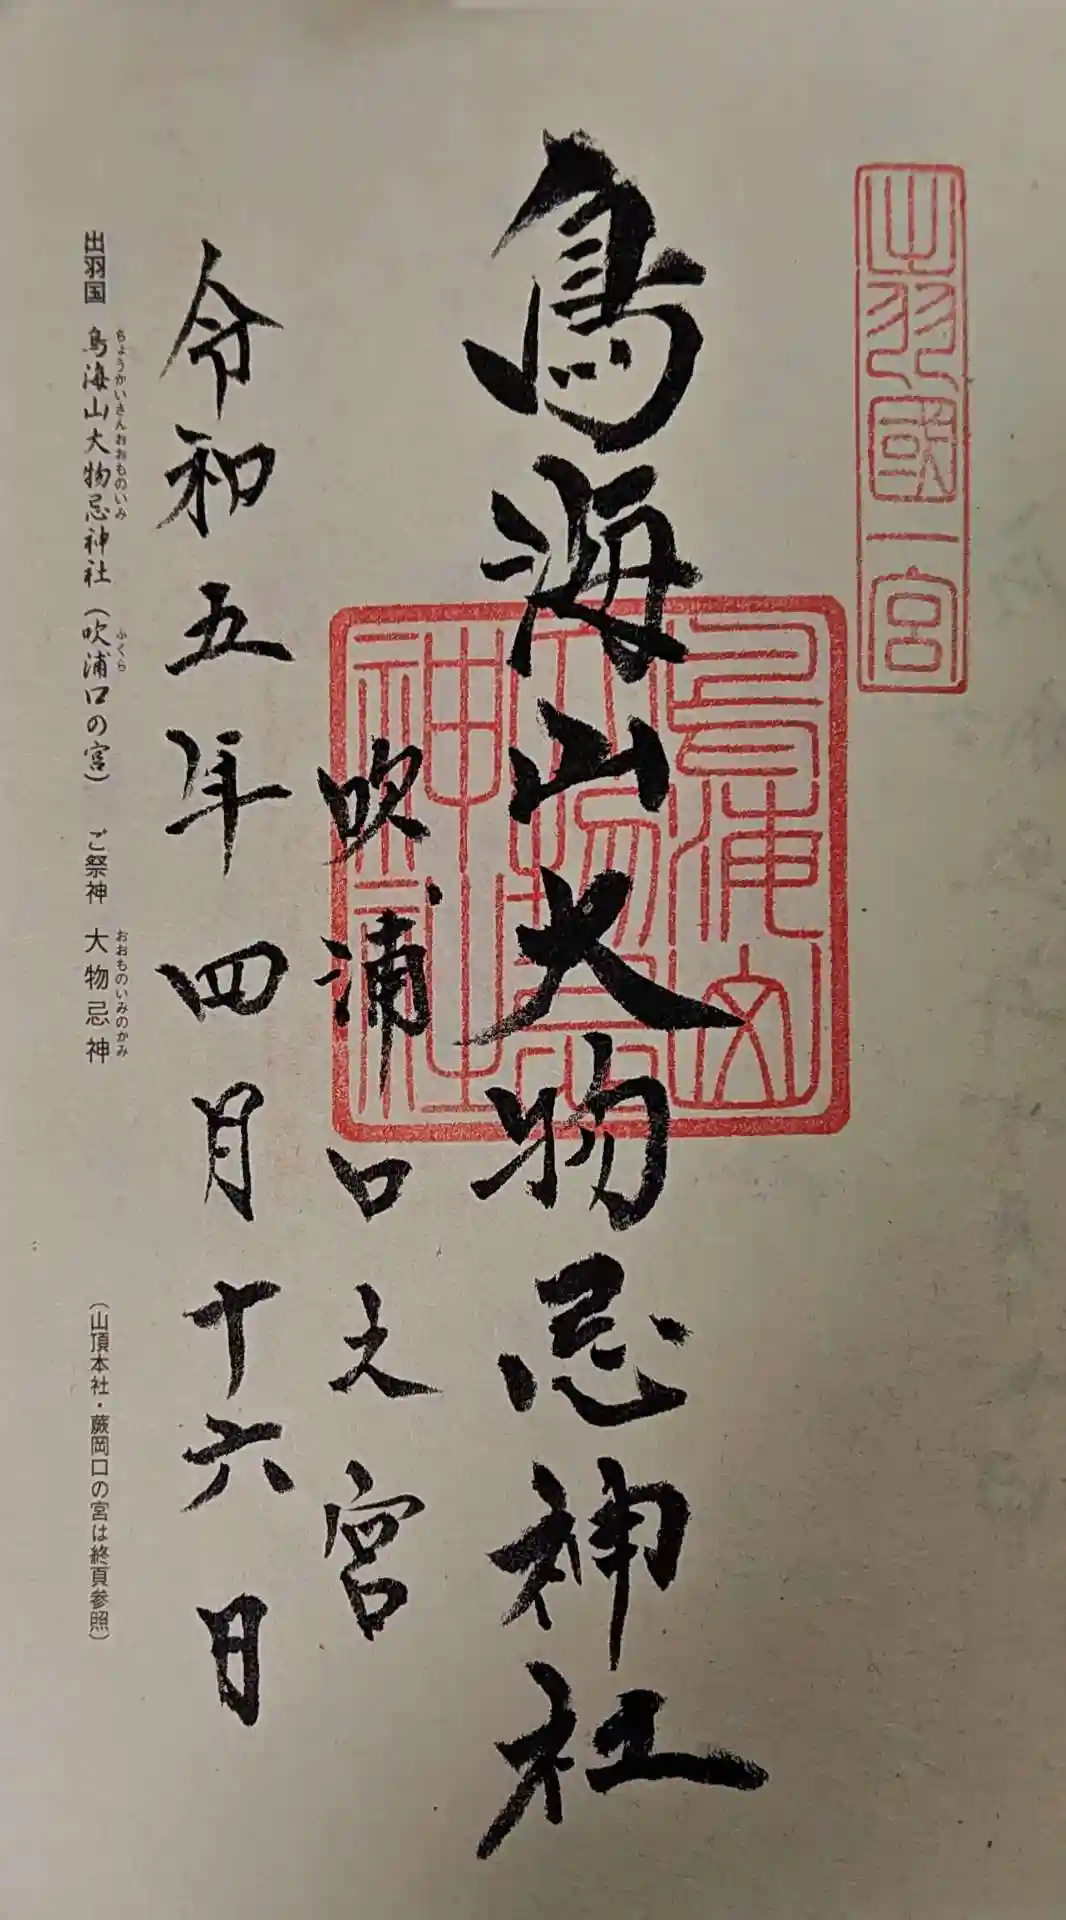 出羽國一宮
鳥海山大物忌神社
鳥海山大物忌神社
吹浦口之宮
令和五年四月十六日
出羽国 鳥海山大物忌神社（吹浦口の宮） ご祭神 大物忌神
ちょうかいさんおおものいみ ふくら おおものいみのかみ
（山頂本社・蕨岡口の宮は終頁参照）